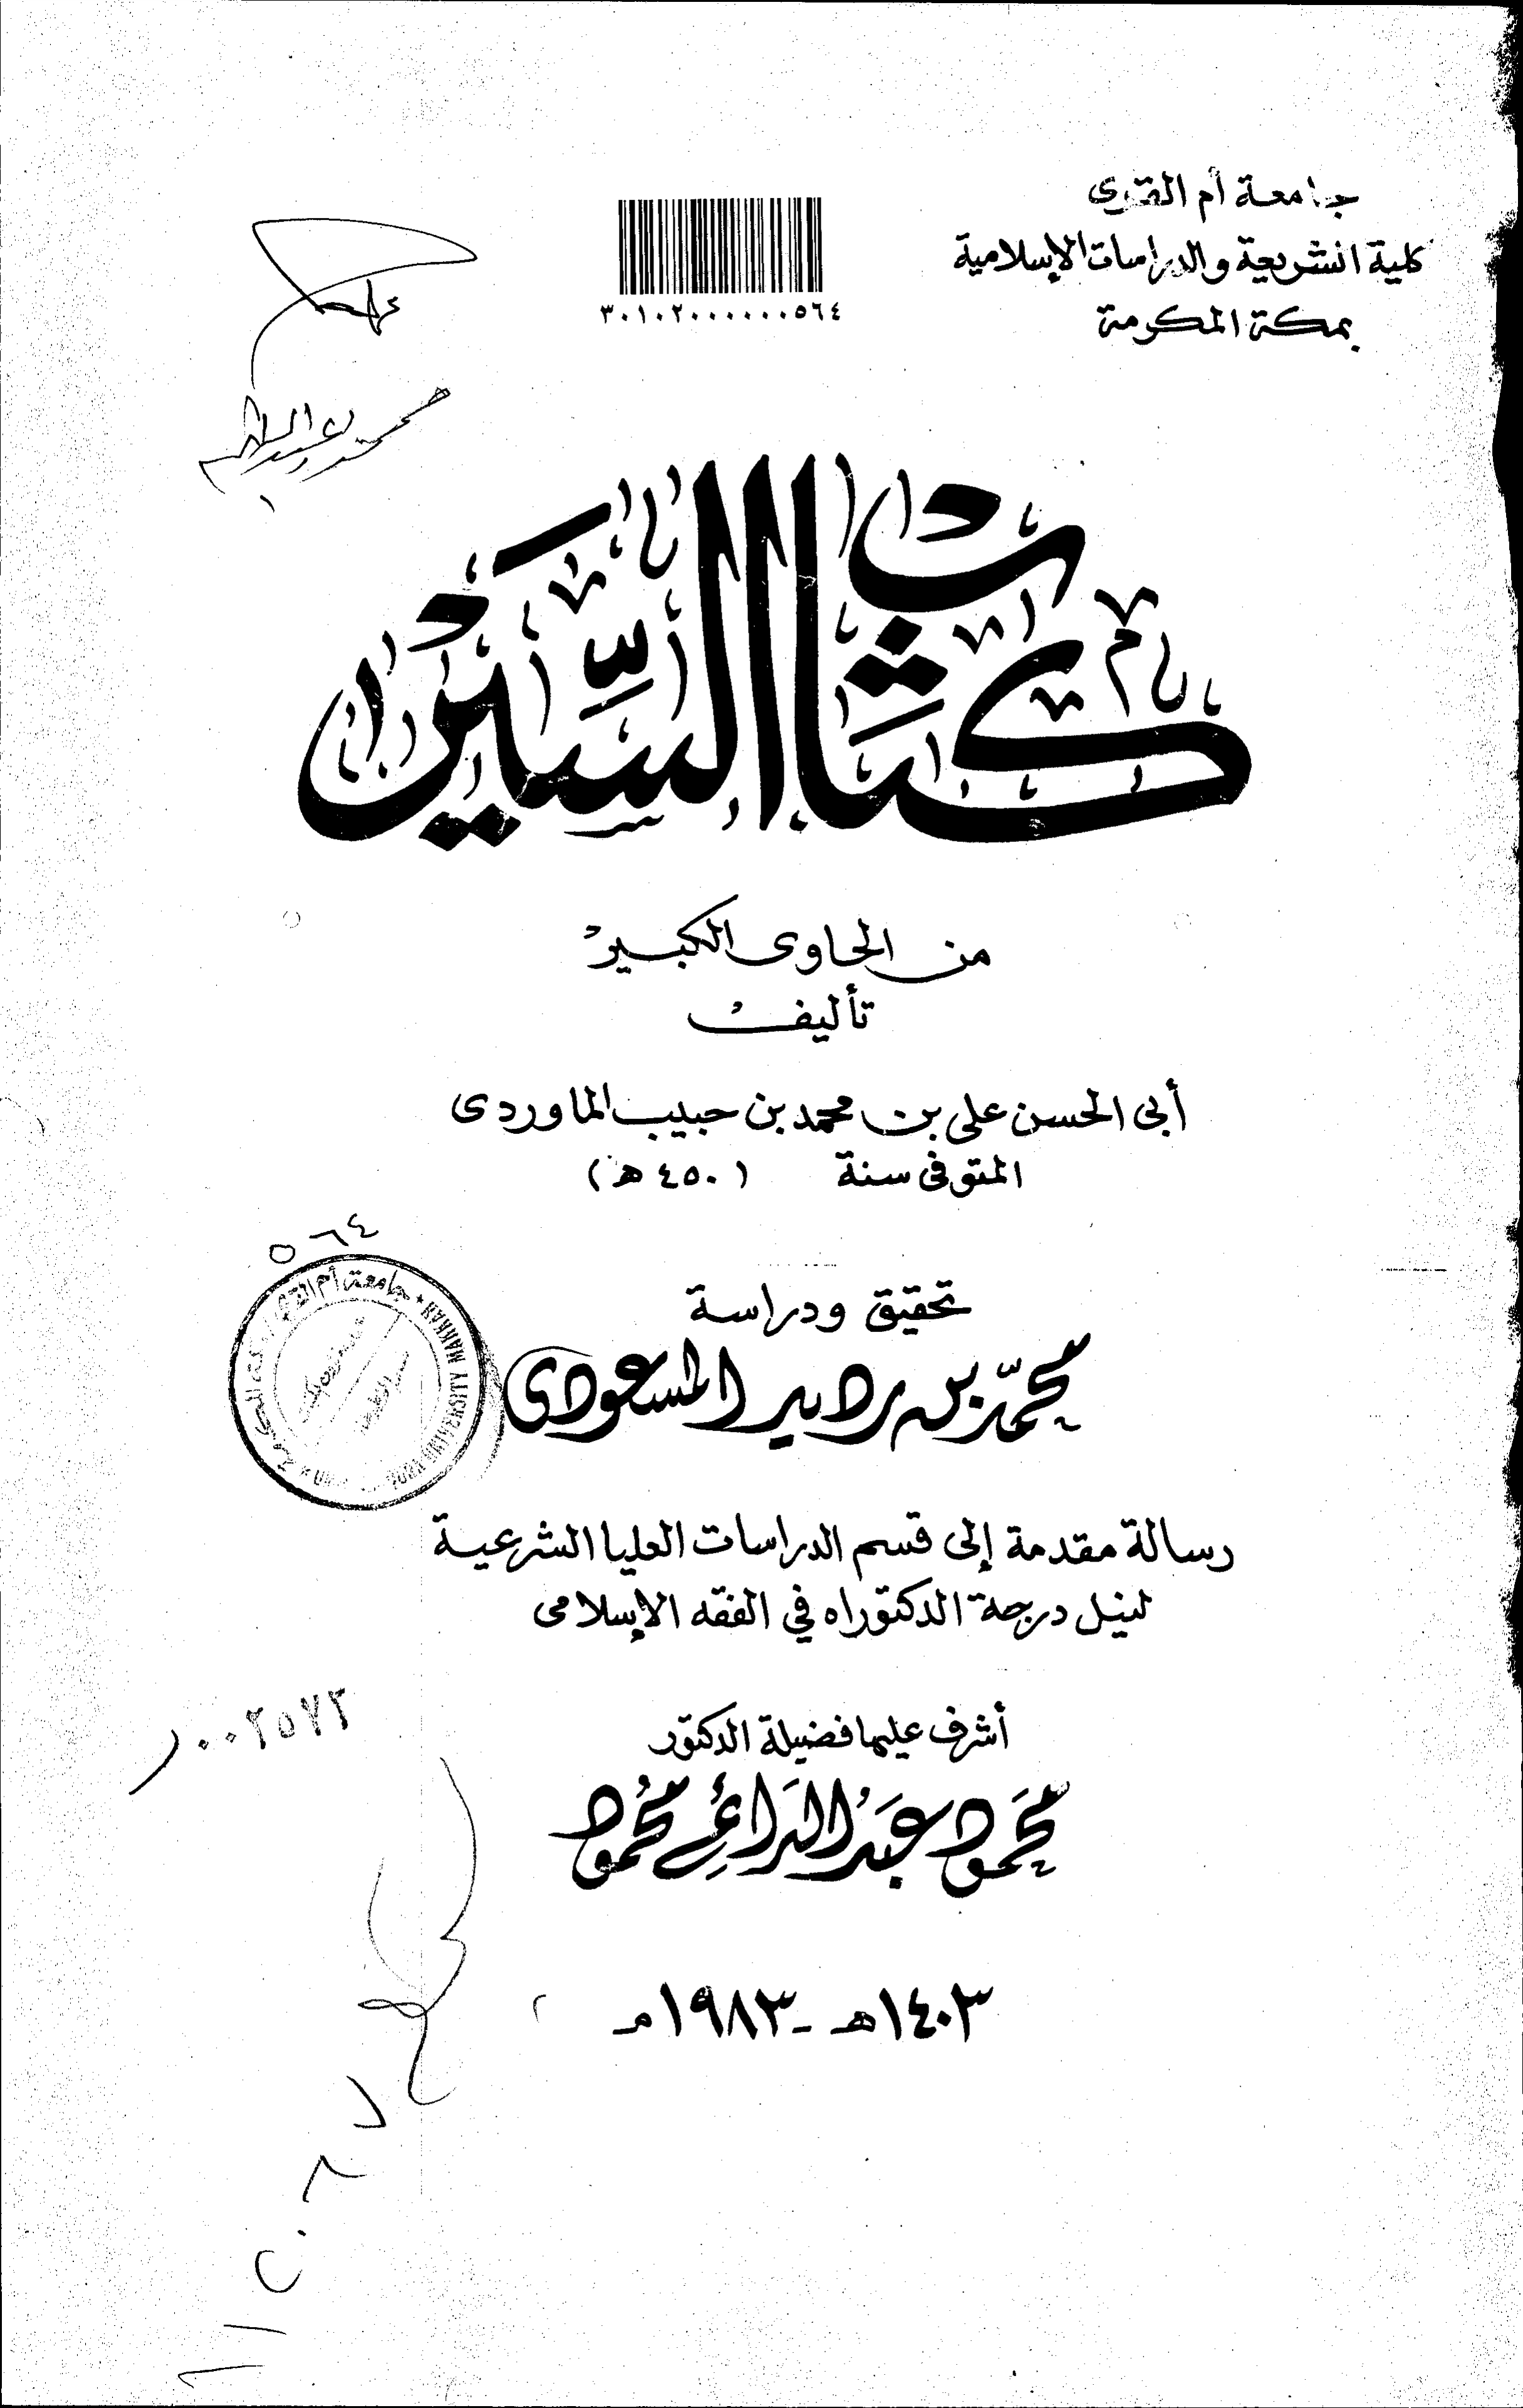 جامعة أم القرى
كلية الشريعة والدراسات الإسلامية
بمكة المكرمة
٣٠١٠٢٠٠٠٠٠٠٥٦٤
كتاب السير
من الحاوى الكبير
تأليف
أبى الحسن على بن محمد بن حبيب الماوردى
المتوفى سنة (٤٥٠ هـ)
٥٦٤
جامعة أم القرى
MAKKAH
تحقيق ودراسة
محمد بن رديد المسعودى
رسالة مقدمة إلى قسم الدراسات العليا الشرعية
لنيل درجة الدكتوراه في الفقه الإسلامى
أشرف عليها فضيلة الدكتور
٠٠٢٥٧٢
محمود عبد الدائم محمود
١٤٠٣هـ - ١٩٨٣م